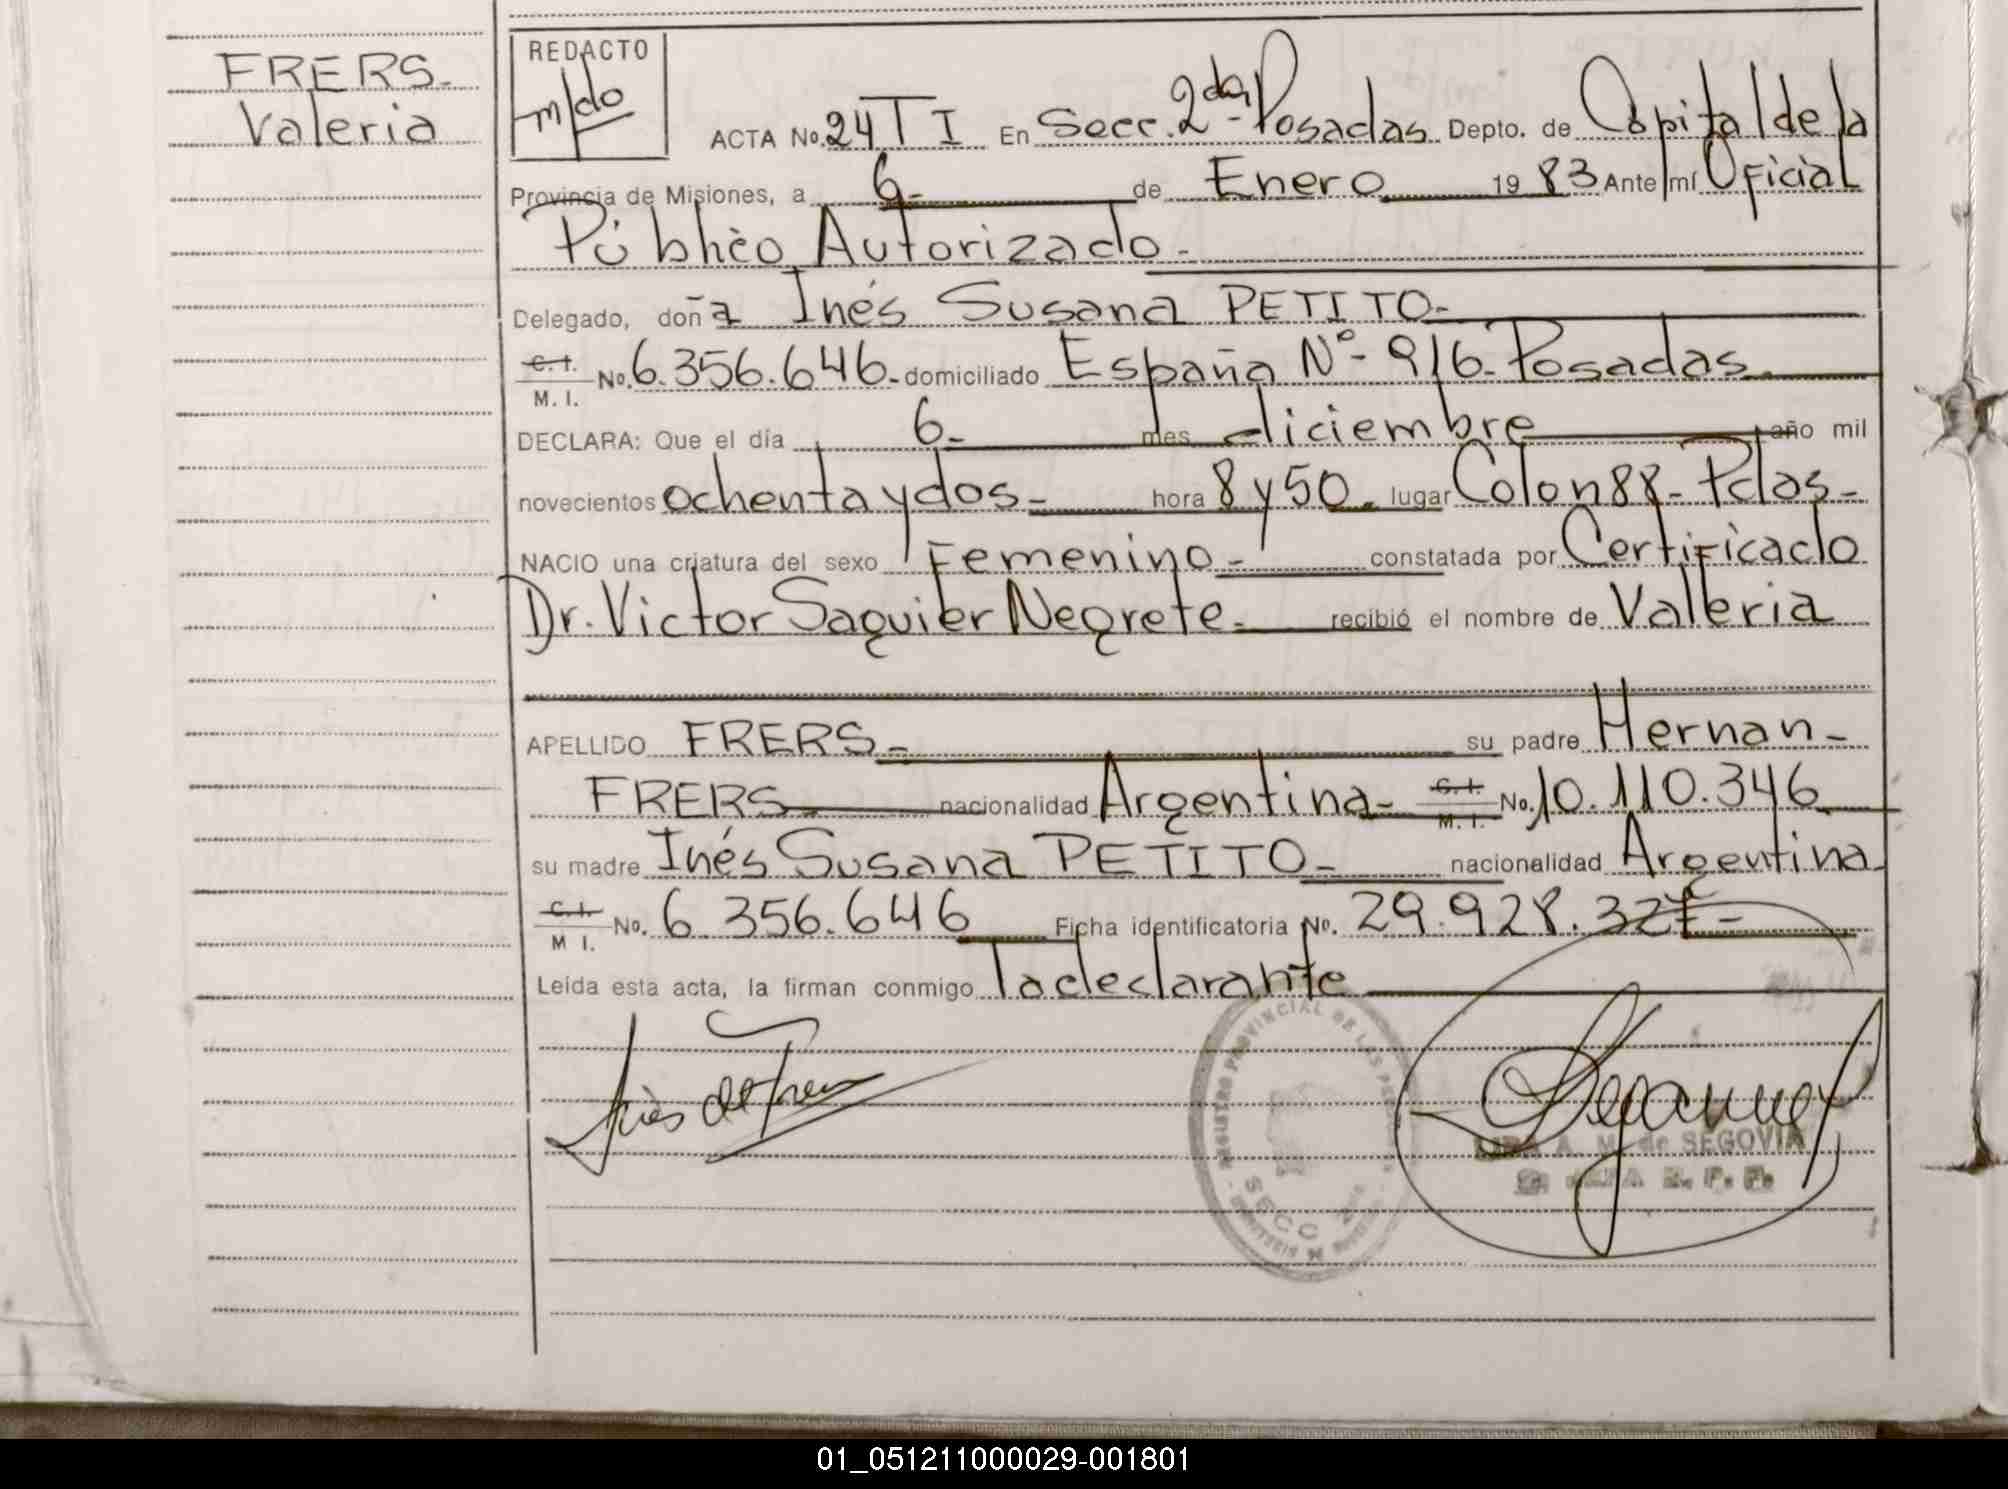 FRERS-
Valeria
REDACTO
m/do
ACTA No. 24 T I En Secc. 2da- Posadas Depto. de Capital de la
Provincia de Misiones, a 6- de Enero 1983 Ante mí Oficial
Público Autorizado-
Delegado, doña Inés Susana PETITO-
C. I.
M. I. No. 6.356.646- domiciliado España Nº- 916- Posadas-
DECLARA: Que el día 6- mes diciembre año mil
novecientos ochenta y dos- hora 8 y 50- lugar Colon 88- Pdas-
NACIO una criatura del sexo Femenino- constatada por Certificado
Dr. Victor Saguier Negrete- recibió el nombre de Valeria
APELLIDO FRERS- su padre Hernan-
FRERS nacionalidad Argentina- C. I. M. I. No. 10.110.346
su madre Inés Susana PETITO- nacionalidad Argentina
C. I.
M I. No. 6.356.646 Ficha identificatoria No. 29.928.327-
Leída esta acta, la firman conmigo la declarante
REGISTRO PROVINCIAL DE LAS
SECC 2
A. M. de SEGOVIA
R. P. P.
01_051211000029-001801